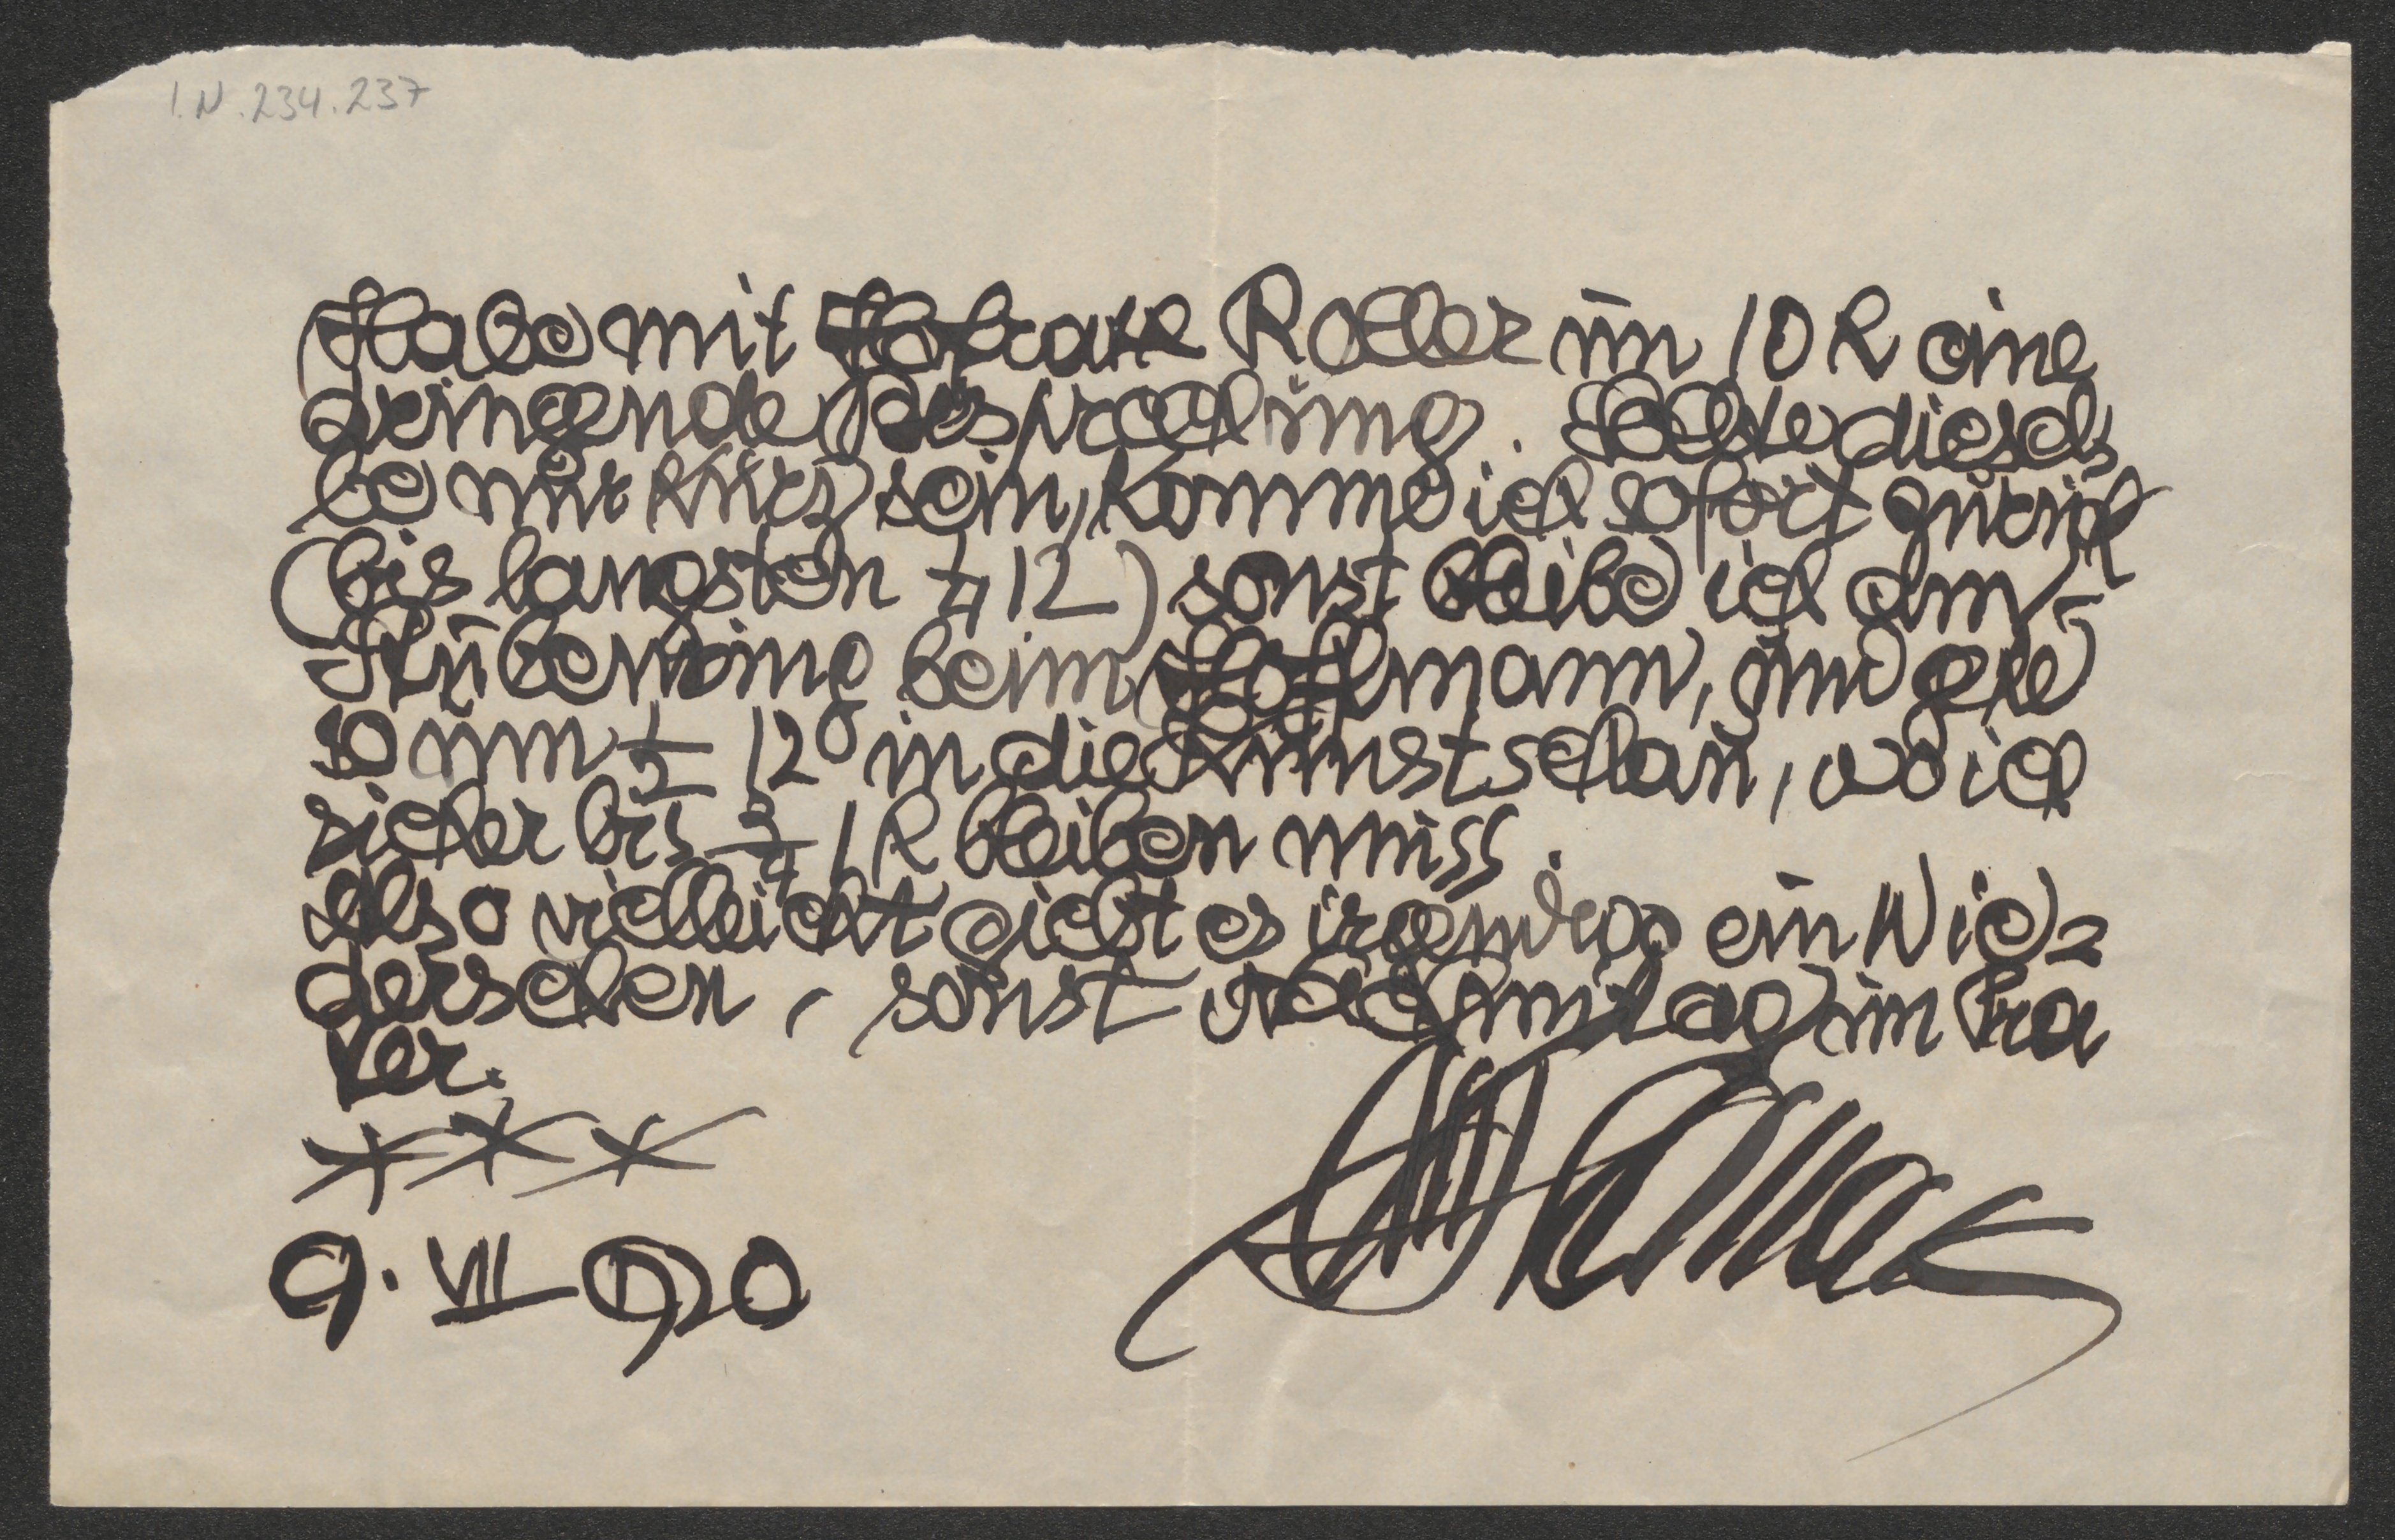 I.N. 234.237
Habe mit Hofrate Roller um 10 h eine
dringende Besprechung. Sollte diesel-
be nur kurz sein, komme ich sofort zurück
(bis langsten ¼ 12) sonst bleibe ich am
Stubenring beim Hoffmann, und gehe
so um ½ 12 in die Kunstschau, wo ich
sicher bis ¾ 1 h bleiben muss.
Also vielleicht giebt es irgendwo ein Wie=
dersehen, sonst Nachmitag im Pra
ter.
9. VII 920